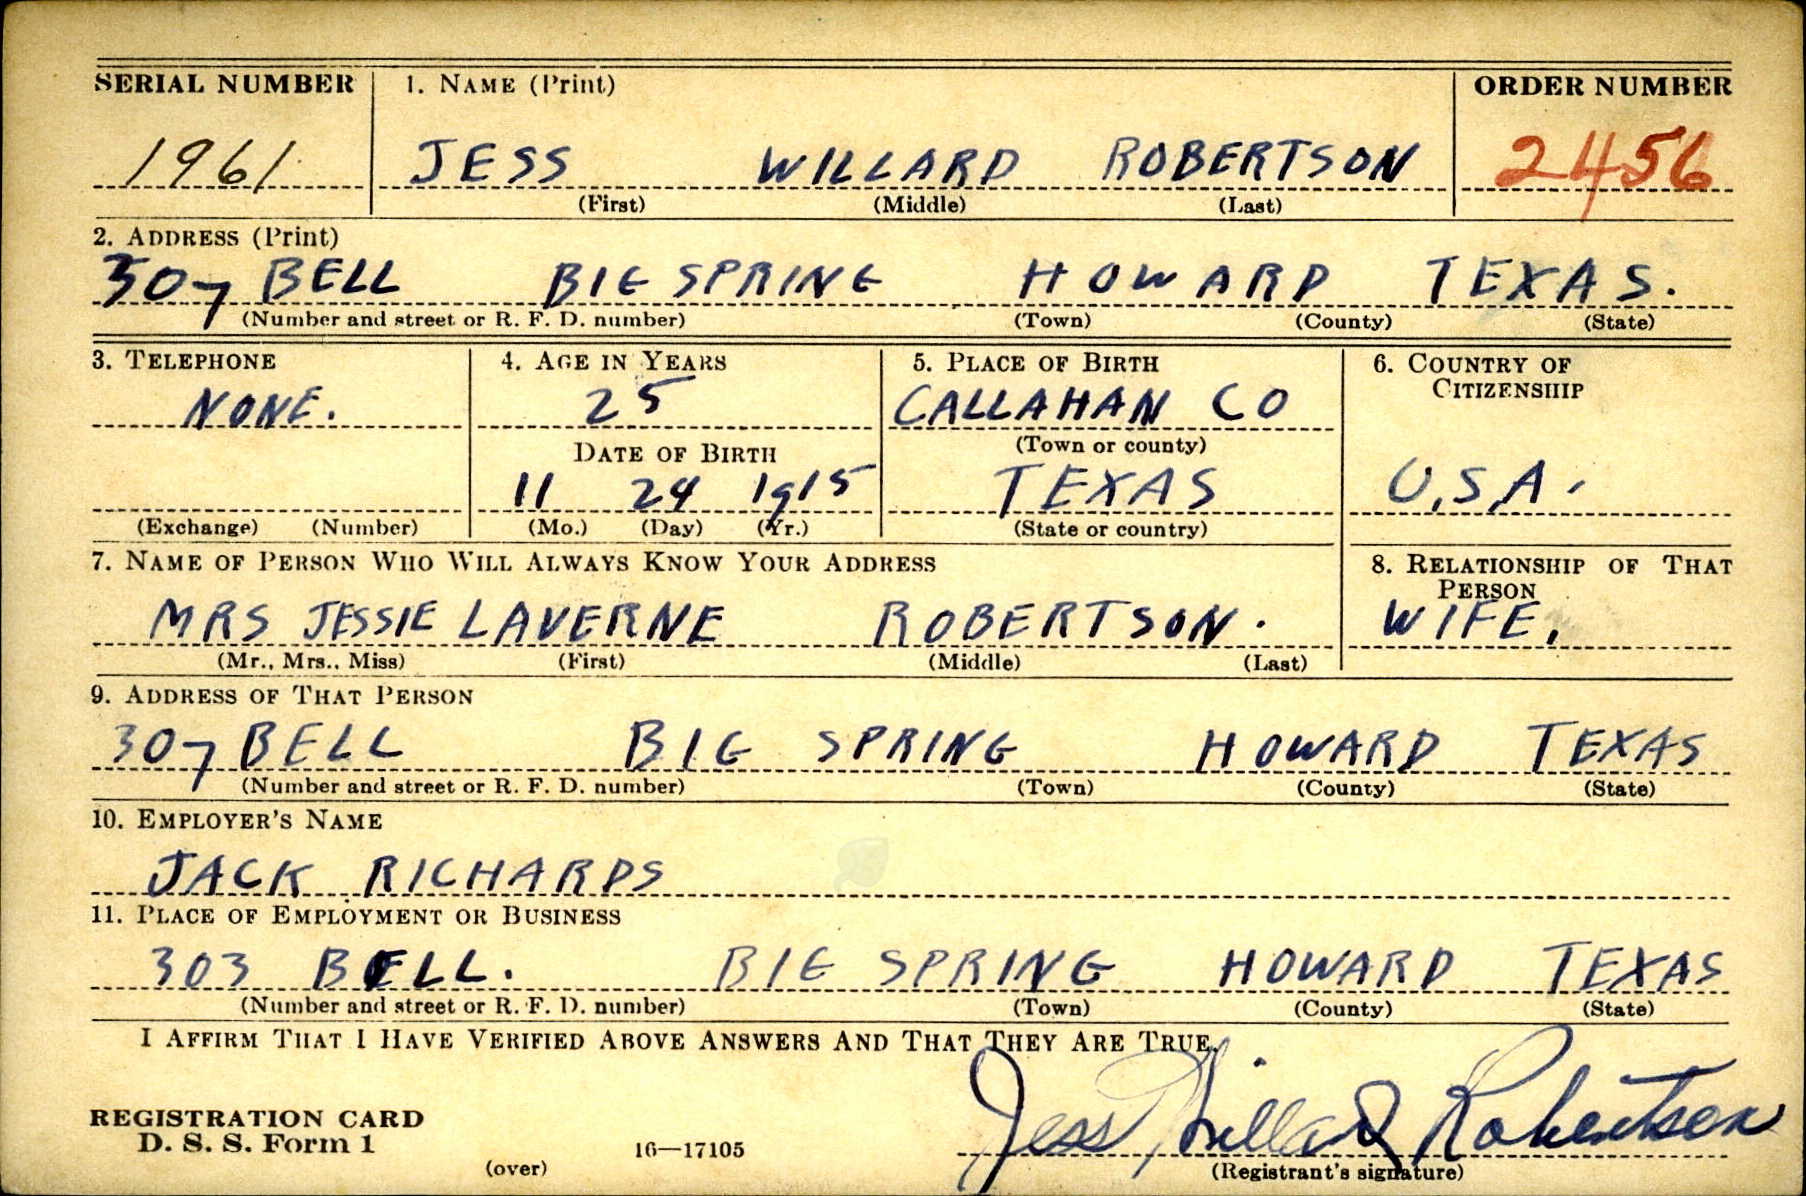 SERIAL NUMBER 1. NAME (Print) ORDER NUMBER
1961 JESS WILLARD ROBERTSON 2456
(First) (Middle) (Last)
2. ADDRESS (Print)
307 BELL BIG SPRING HOWARD TEXAS.
(Number and street or R. F. D. number) (Town) (County) (State)
3. TELEPHONE 4. AGE IN YEARS 5. PLACE OF BIRTH 6. COUNTRY OF
CITIZENSHIP
NONE. 25 CALLAHAN CO
(Town or county)
DATE OF BIRTH
11 24 1915 TEXAS U.S.A.
(Exchange) (Number) (Mo.) (Day) (Yr.) (State or country)
7. NAME OF PERSON WHO WILL ALWAYS KNOW YOUR ADDRESS 8. RELATIONSHIP OF THAT
PERSON
MRS JESSIE LAVERNE ROBERTSON. WIFE.
(Mr., Mrs., Miss) (First) (Middle) (Last)
9. ADDRESS OF THAT PERSON
307 BELL BIG SPRING HOWARD TEXAS
(Number and street or R. F. D. number) (Town) (County) (State)
10. EMPLOYER'S NAME
JACK RICHARDS
11. PLACE OF EMPLOYMENT OR BUSINESS
303 BELL. BIG SPRING HOWARD TEXAS
(Number and street or R. F. D. number) (Town) (County) (State)
I AFFIRM THAT I HAVE VERIFIED ABOVE ANSWERS AND THAT THEY ARE TRUE.
REGISTRATION CARD
D. S. S. Form 1 16—17105 Jess Willard Robertson
(over) (Registrant's signature)